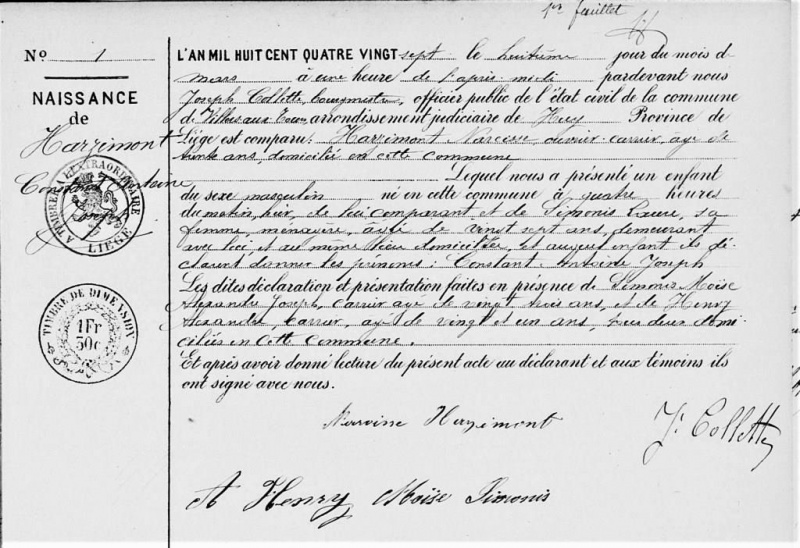 1er feuillet
No 1
NAISSANCE
de
Harzimont
Constant Antoine
Joseph
TIMBRE EXTRAORDINAIRE
LIEGE
TIMBRE DE DIMENSION
1Fr
30c
L'AN MIL HUIT CENT QUATRE VINGT sept le huitième jour du mois d
mars à une heure de l'après midi pardevant nous
Joseph Collette, bourgmestre, officier public de l'état civil de la commune
d arrondissement judiciaire de Huy Province de
Liége est comparu: Harzimont Narcisse, ouvrier carrier, agé de
trente ans, domicilié en cette commune
Lequel nous a présenté un enfant
du sexe masculin né en cette commune à quatre heures
du matin, hier, de lui comparant et de Simonis sa
femme, ménagère, agée de vingt sept ans, demeurant
avec lui et au même lieu domiciliée, et auquel enfant il dé-
clare donner les prénoms: Constant Antoine Joseph
Les dites déclaration et présentation faites en présence de Simonis Moïse
Alexandre Joseph, carrier agé de vingt trois ans, et de Henry
Alexandre, carrier, agé de vingt et un ans, tous deux domi-
ciliés en cette commune.
Et après avoir donné lecture du présent acte au déclarant et aux témoins ils
ont signé avec nous.
Harzimont
J. Collette
A Henry Moïse Simonis